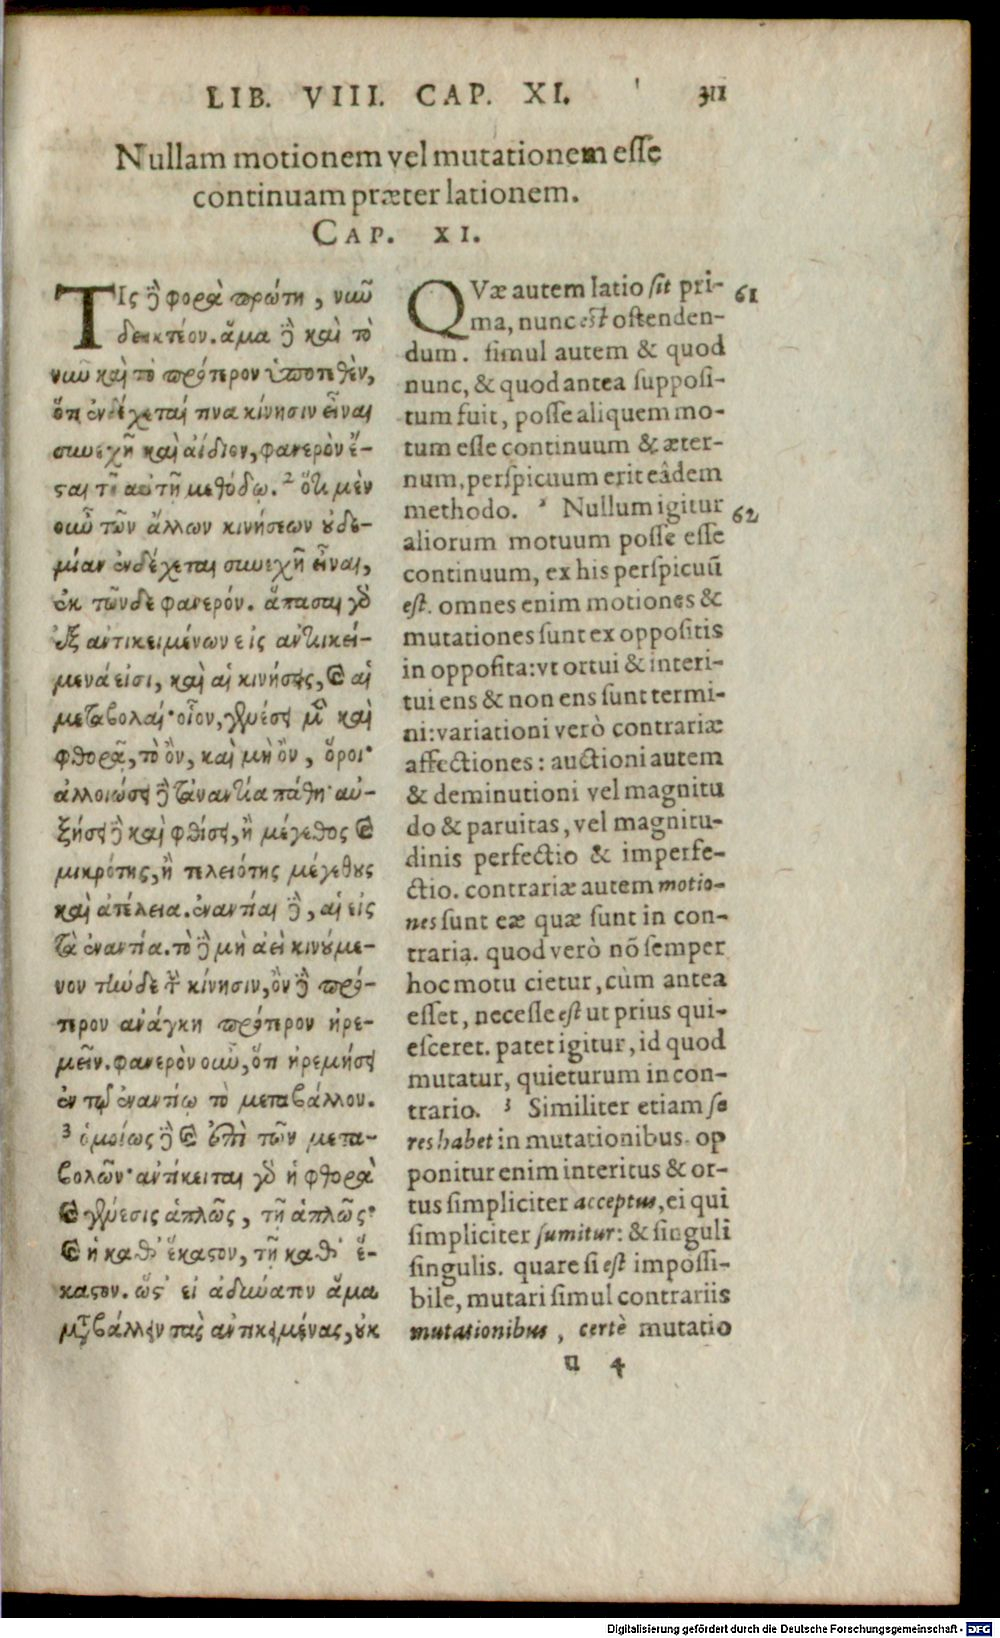 LIB. VIII. CAP. XI. 311
Nullam motionem vel mutationem esse
continuam præter lationem.
CAP. XI.
Τὶς ἢ φορὰ πρώτη, νιῦ
δεικτέον. ἅμα ἢ καὶ τὸ
νιῦ καὶ τὸ πρότερον ὑποτεθὲν,
ὅτι ἐνδέχεταί τινα κίνησιν εἶναι
συνεχῆ καὶ ἀΐδιον, φανερὸν ἔ-
ςαι τῇ αὐτῇ μεθόδῳ. 2 ὅτι μὲν
οὖν τῶν ἄλλων κινήσεων ȣδε-
μίαν ἐνδέχεται συνεχῆ εἶναι,
ἐκ τῶνδε φανερόν. ἅπασαι γὸ
ἐξ ἀντικειμένων εἰς ἀντικεί-
μενά εἰσι, καὶ αἱ κινήσεις, καὶ αἱ
μεταβολαί· οἷον, γενέσει μὲν καὶ
φθορᾷ, τὸ ὂν, καὶ μὴ ὂν, ὅροι·
ἀλλοιώσει δὲ τἀναντία πάθη· αὐ-
ξήσει δὲ καὶ φθίσει, ἢ μέγεθος καὶ
μικρότης, ἢ τελειότης μεγέθȣς
καὶ ἀτέλεια. ἐναντίαι δὲ, αἱ εἰς
τὰ ἐναντία. τὸ δὲ μὴ ἀεὶ κινȣ́με-
νον τήνδε τὴν κίνησιν, ὂν δὲ πρό-
τερον ἀνάγκη πρότερον ἠρε-
μεῖν. φανερὸν οὖν, ὅτι ἠρεμήσει
ἐν τῷ ἐναντίῳ τὸ μεταβάλλον.
3 ὁμοίως δὲ καὶ ἐπὶ τῶν μετα-
βολῶν· ἀντίκειται γὸ ἡ φθορὰ
καὶ γένεσις ἁπλῶς, τῇ ἁπλῶς·
καὶ ἡ καθ' ἕκαςον, τῇ καθ' ἕ-
καςον. ὥς' εἰ ἀδύνατον ἅμα
μεταβάλλειν τὰς ἀντικειμένας, ȣκ
QVæ autem latio sit pri- 61
ma, nunc est ostenden-
dum. simul autem & quod
nunc, & quod antea supposi-
tum fuit, posse aliquem mo-
tum esse continuum & æter-
num, perspicuum erit eâdem
methodo. 2 Nullum igitur 62
aliorum motuum posse esse
continuum, ex his perspicuū
est. omnes enim motiones &
mutationes sunt ex oppositis
in opposita: vt ortui & interi-
tui ens & non ens sunt termi-
ni: variationi verò contrariæ
affectiones: auctioni autem
& deminutioni vel magnitu
do & paruitas, vel magnitu-
dinis perfectio & imperfe-
ctio. contrariæ autem motio-
nes sunt eæ quæ sunt in con-
traria. quod verò nō semper
hoc motu cietur, cùm antea
esset, necesse est ut prius qui-
esceret. patet igitur, id quod
mutatur, quieturum in con-
trario. 3 Similiter etiam se
res habet in mutationibus. op
ponitur enim interitus & or-
tus simpliciter acceptus, ei qui
simpliciter sumitur: & singuli
singulis. quare si est impossi-
bile, mutari simul contrariis
mutationibus, certè mutatio
u 4
Digitalisierung gefördert durch die Deutsche Forschungsgemeinschaft - DFG